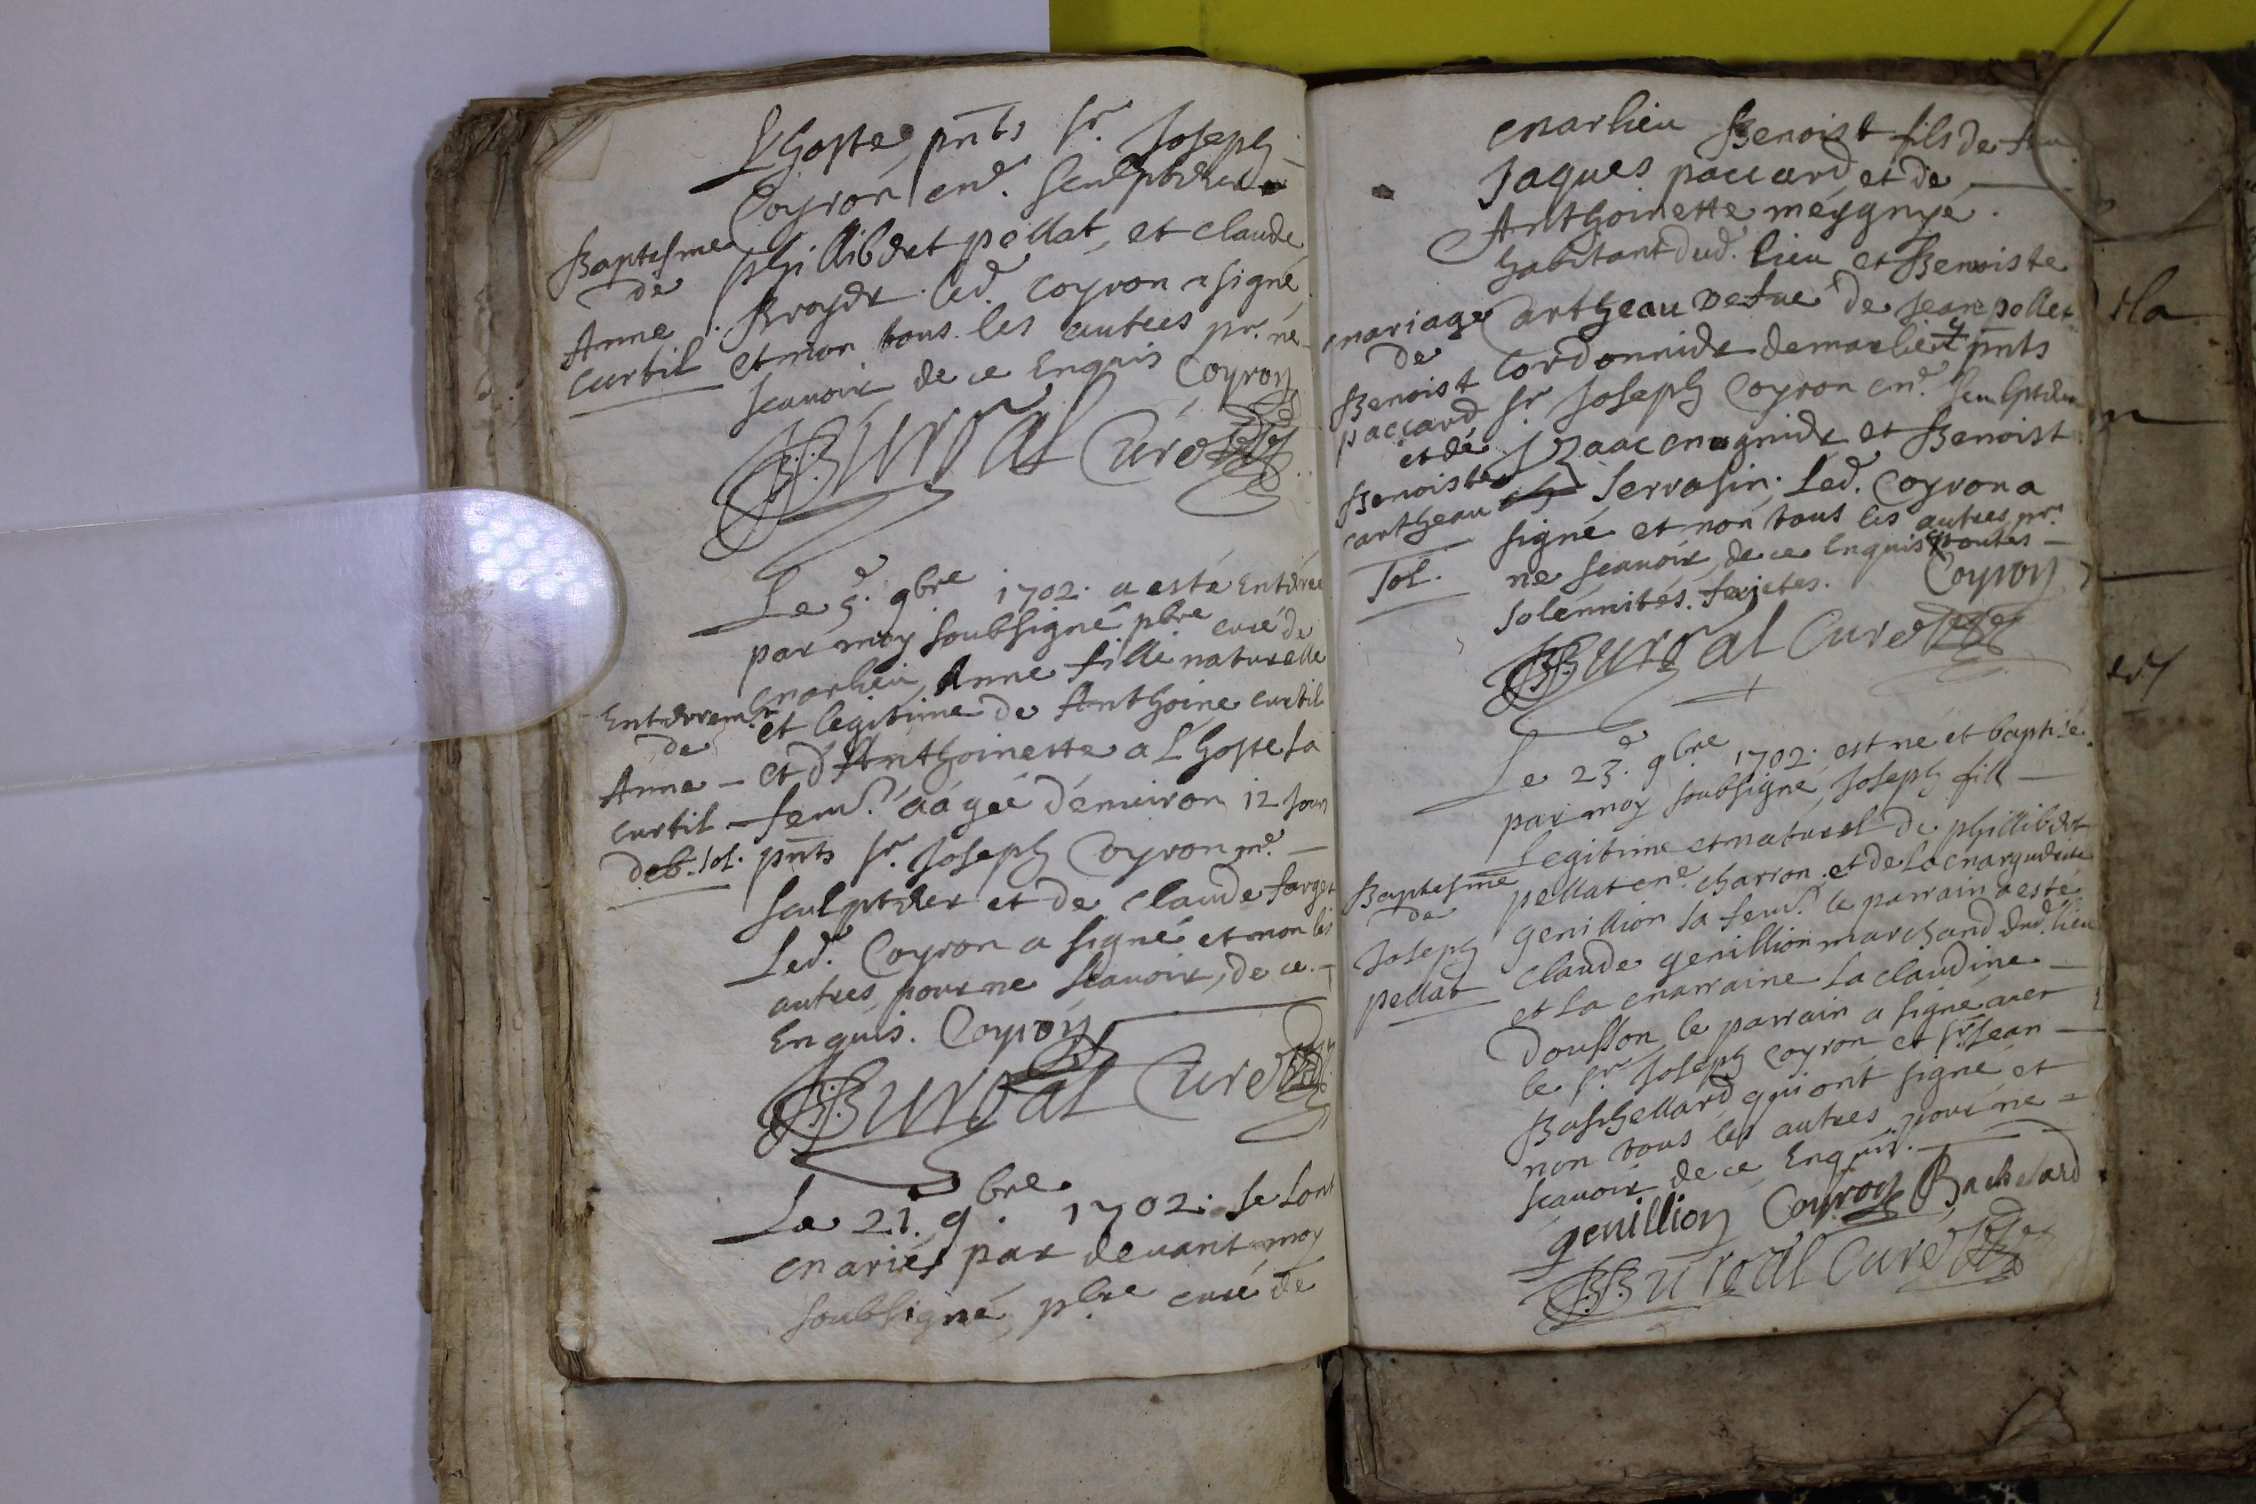 LHoste, pnts Sr. Joseph
Coyron me. Sculpteur
Baptesme
de
Anne
Curtil
Phillibert pellat, et claude
Broyer. Led. Coyron a signé
et non tous les autres pr. ne
scauoir de ce Enquis Coyron
BBuroal Curé
Le 5e. 9bre 1702. a esté Enterrée
par moy soubsigné pbre curé de
marlieu, Anne fille naturelle
Enterremt
de
Anne
curtil
deb. sol.
et legitime de Anthoine curtil
et d'Anthoinette a LHoste sa
fem. aágée d'enuiron 12 jours
pnts Sr. Joseph Coyron me.
sculpteur et de claude farget
Led. Coyron a signé et non les
autres, pour ne scauoir, de ce
Enquis. Coyron
BBuroal Curé
Le 21. 9bre. 1702. se sont
mariés par deuant moy
soubsigné, pbre curé de
marlieu Benoist fils de feu
Jaques paccard et de
Anthoinette meygnyé.
habitant dud. lieu et Benoiste
mariage
de
Benoist
paccard
et de
Benoiste
cartheau
Sol.
Cartheau vefue de Jean pollet
Cordonnier de marlieu pnts
Sr Joseph Coyron me. Sculpteur
Izaac magnidr et Benoist
Serrasin. Led. Coyron a
signé et non tous les autres, pr.
ne scauoir, de ce Enquis toutes
solennités. Coyron
BBuroal Curé
Le 23e. 9bre 1702. est né et baptisé.
par moy soubsigné, Joseph fill
Legitime et naturel de phillibert
Baptesme
de
Joseph
pellat
pellat me. charron. et de la marguerite
genillion sa fem. le parrain a esté
Claude genillion marchand dud. lieu
et la marraine la claudine
Dousson, le parrain a signé auec
le Sr Joseph Coyron et Sr. Jean
Baschellard qui ont signé et
non tous les autres pour ne
scauoir de ce Enquis.
genillion Coyron Bachelard
BBuroal Curé